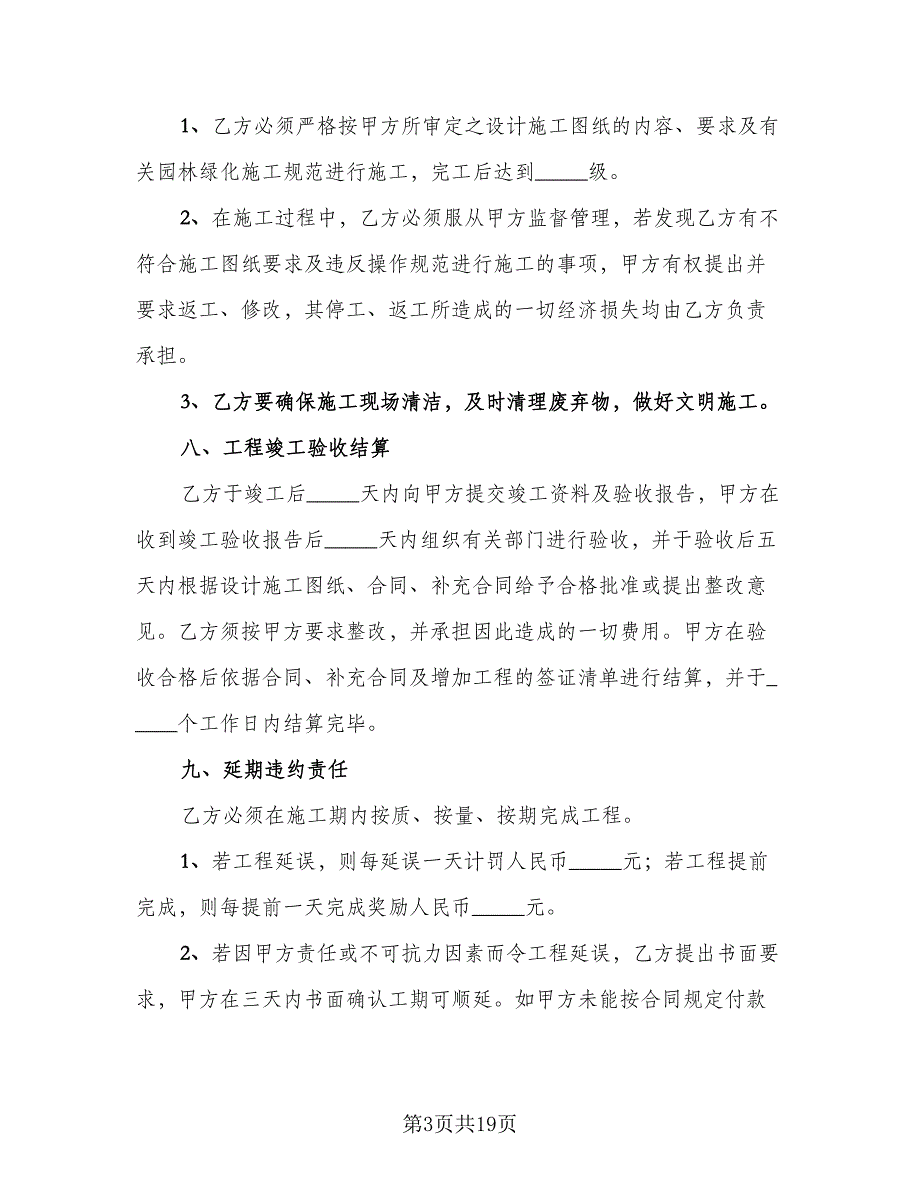 1、乙方必须严格按甲方所审定之设计施工图纸的内容、要求及有
关园林绿化施工规范进行施工，完工后达到_____级。
2、在施工过程中，乙方必须服从甲方监督管理，若发现乙方有不
符合施工图纸要求及违反操作规范进行施工的事项，甲方有权提出并
要求返工、修改，其停工、返工所造成的一切经济损失均由乙方负责
承担。
3、乙方要确保施工现场清洁，及时清理废弃物，做好文明施工。
八、工程竣工验收结算
乙方于竣工后_____天内向甲方提交竣工资料及验收报告，甲方在
收到竣工验收报告后_____天内组织有关部门进行验收，并于验收后五
天内根据设计施工图纸、合同、补充合同给予合格批准或提出整改意
见。乙方须按甲方要求整改，并承担因此造成的一切费用。甲方在验
收合格后依据合同、补充合同及增加工程的签证清单进行结算，并于_
____个工作日内结算完毕。
九、延期违约责任
乙方必须在施工期内按质、按量、按期完成工程。
1、若工程延误，则每延误一天计罚人民币_____元；若工程提前
完成，则每提前一天完成奖励人民币_____元。
2、若因甲方责任或不可抗力因素而令工程延误，乙方提出书面要
求，甲方在三天内书面确认工期可顺延。如甲方未能按合同规定付款
第3页共19页